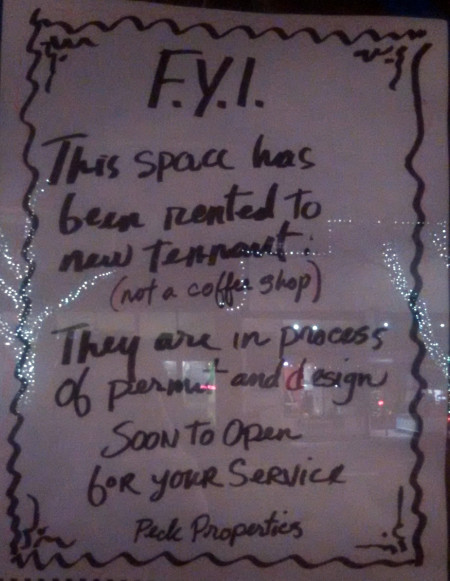 F.Y.I.
This space has
been rented to
new tennant:
(not a coffee shop)
They are in process
of permit and design
Soon To Open
for your Service
Peck Properties